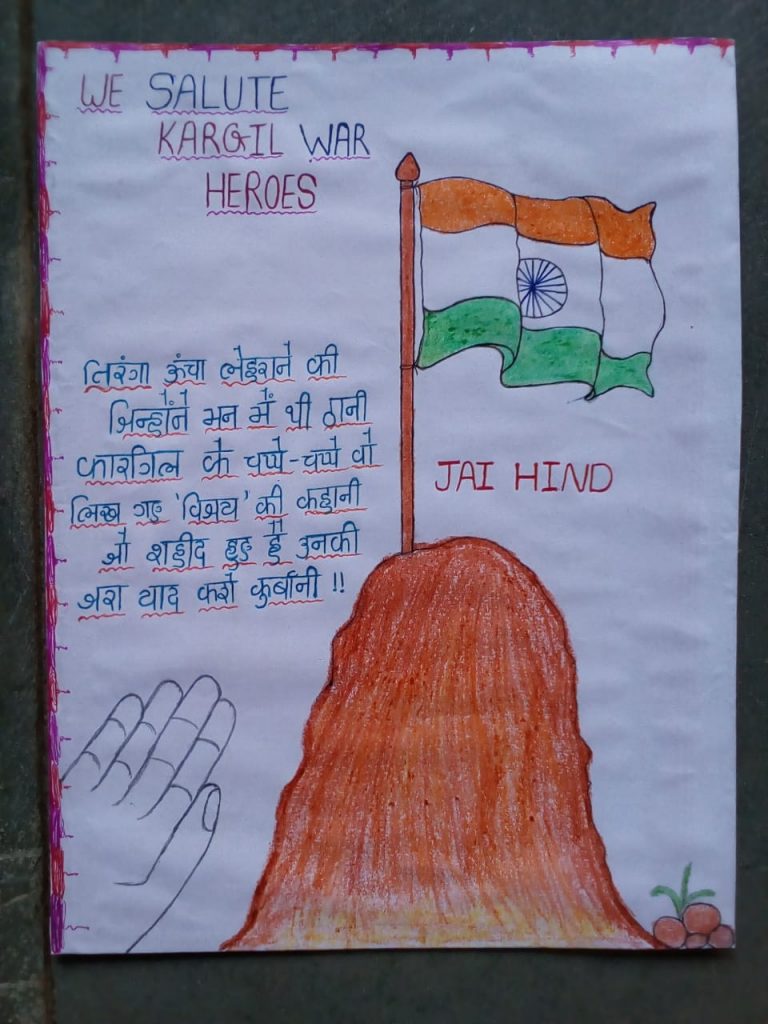 WE SALUTE
KARGIL WAR
HEROES
तिरंगा ऊंचा लेहराने की
जिन्होंने मन में थी ठानी
कारगिल के चप्पे-चप्पे वो
लिख गए 'विजय' की कहानी
जो शहीद हुए है उनकी
जरा याद करो कुर्बानी !!
JAI HIND